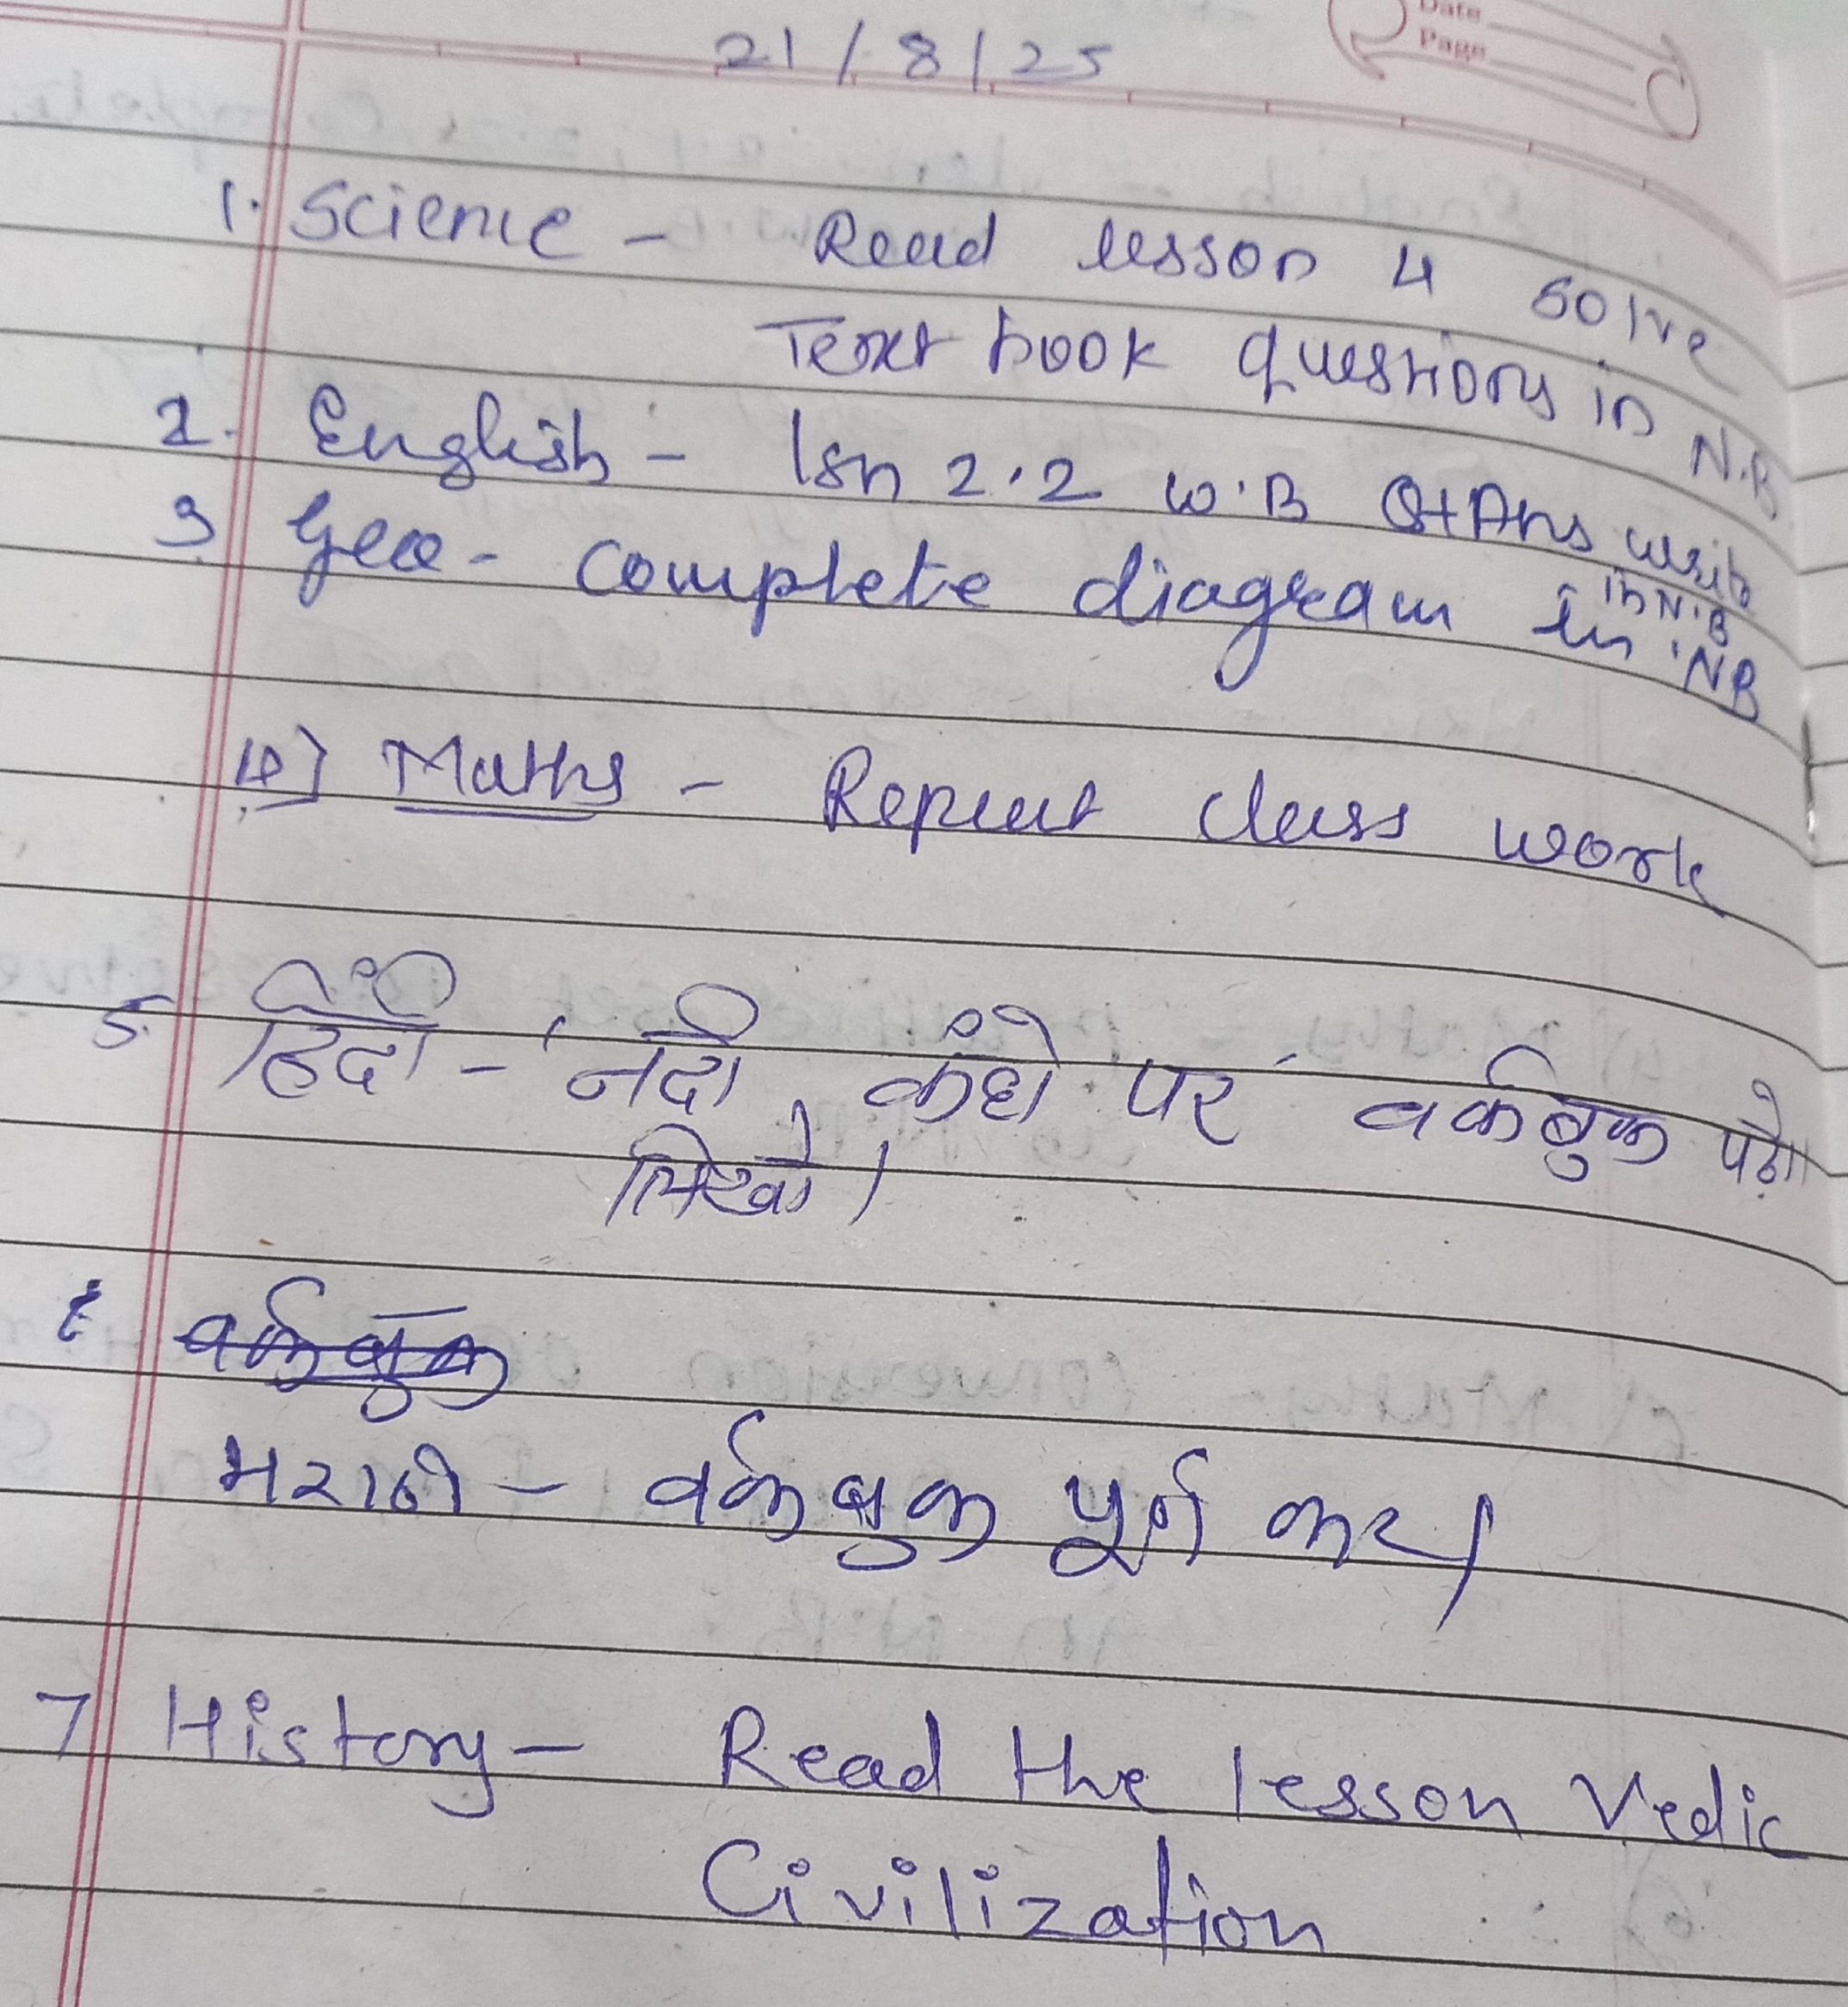 Date
Page
21/8/25
1. Science - Read lesson 4 solve
Text book questions in N.B
2. English - lsn 2.2 W.B Q+Ans write
in N.B
3 Geo - complete diagram in NB
4] Maths - Repeat class work
5. हिंदी - 'नदी कंधे पर' वर्कबुक पढ़ो,
लिखो।
मराठी - वर्कबुक पूर्ण कर।
7 History - Read the lesson Vedic
Civilization